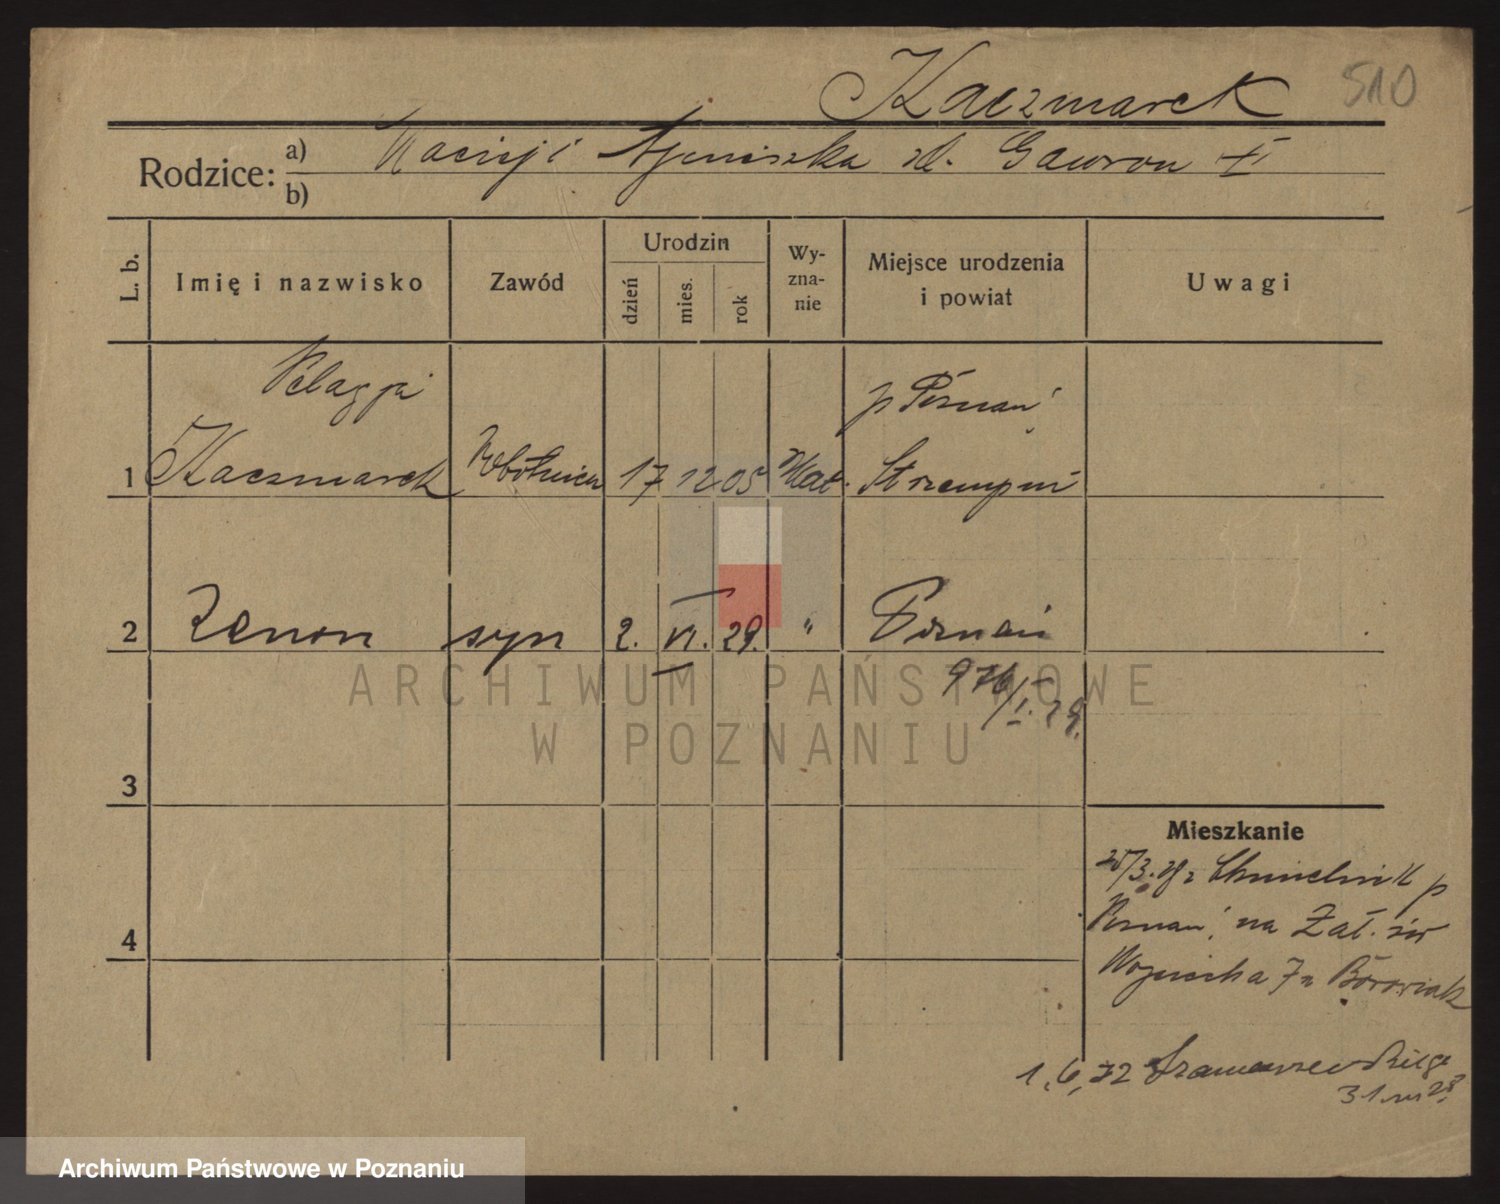 Kaczmarek 510
Rodzice: a) Maciej i Agnieszka zd. Gawron
b)
L. b. Imię i nazwisko Zawód Urodzin dzień mies. rok Wyznanie Miejsce urodzenia i powiat Uwagi
Pelagja p Poznań
1 Kaczmarek Robotnica 17 12 05 Kat. Strzempiń
2 Zenon syn 2. VI. 29. " Poznań
976/I. 29.
3
Mieszkanie
25/3. z Chmielnik p
Poznań, na Zał. św
4
Wojciecha 7 u Borowiak
1. 6. 32
31.
ARCHIWUM PAŃSTWOWE
W POZNANIU
Archiwum Państwowe w Poznaniu